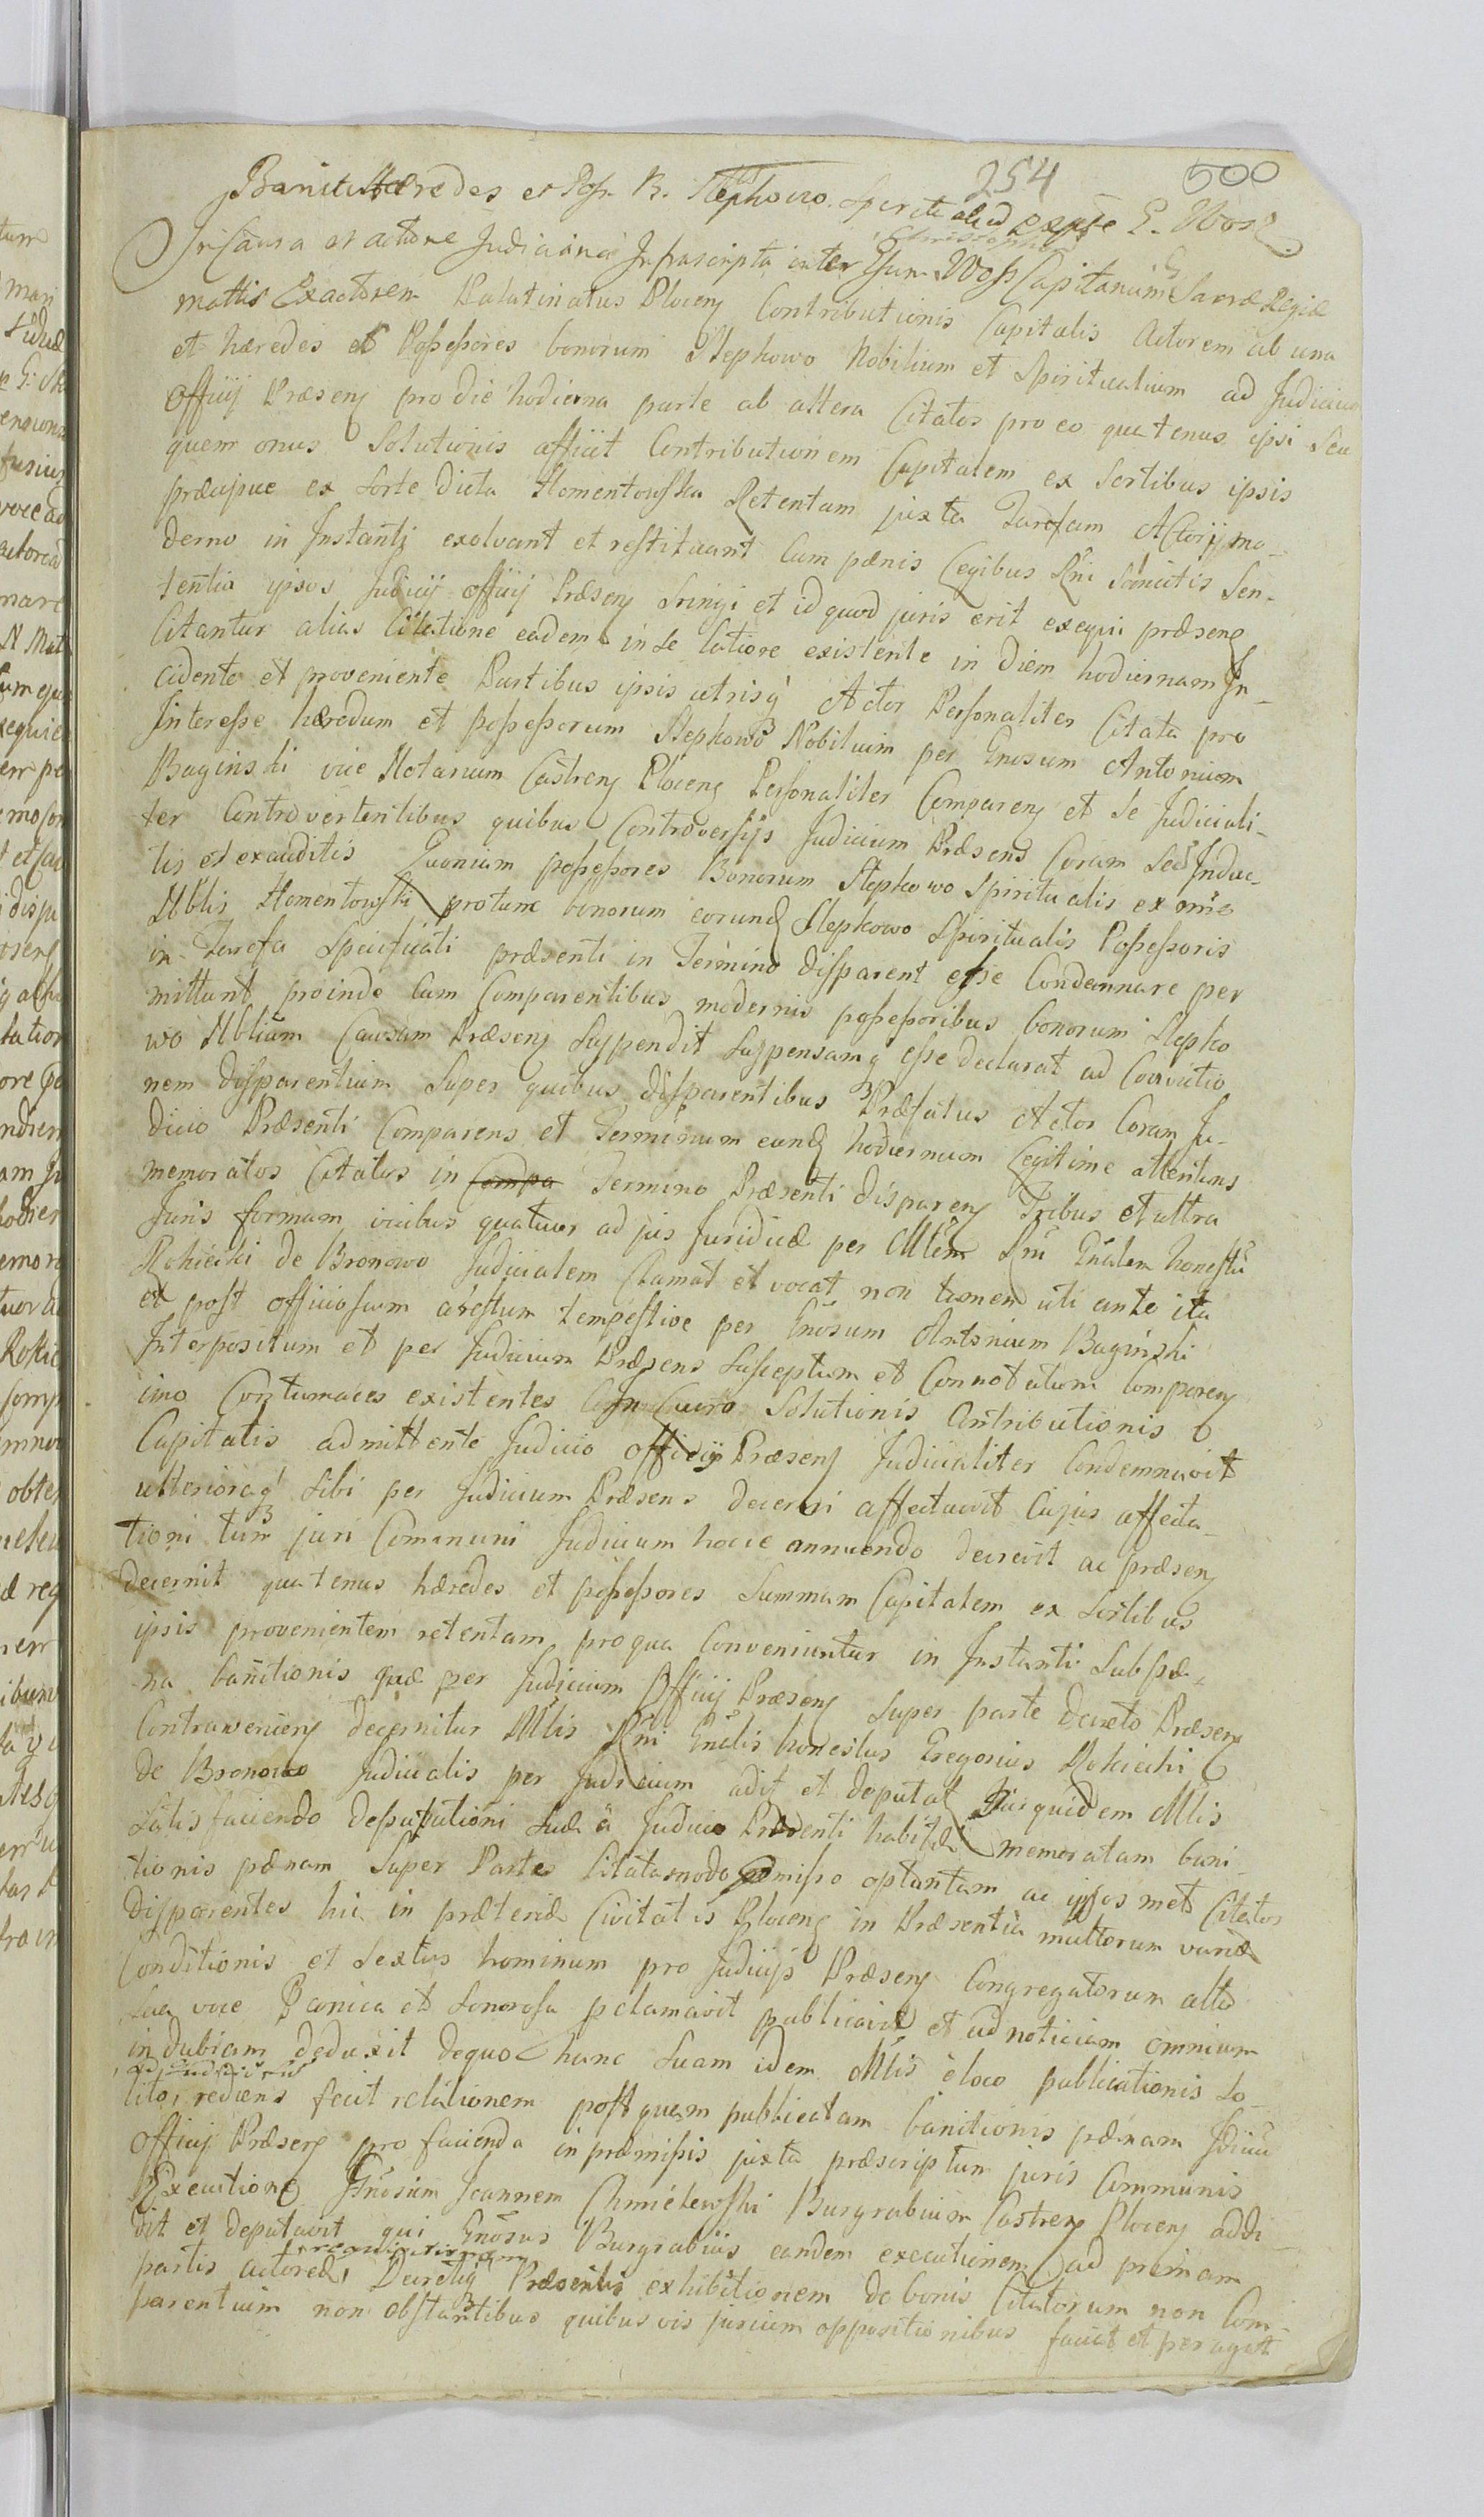 254 500
Baniti Hæredes et Poss. B. Slepkowo Spirituał ad expsse G. Woss
In Causa et actione Judiciaria Infrascripta inter Gsum Christophorum Woss Capitaneum S. Sacræ Regiæ
mattis Exactorem Palatinatus Plocens Contributionis Capitalis Actorem ab una
et hæredes et Possessores bonorum Slepkowo Nobilium et Spiritualium ad Judicium
Officij Præsens pro die hodierna parte ab altera Citatos pro eo quatenus ipsi seu
quem onus Solutionis afficit Contributionem Capitalem ex Sortibus ipsis
præcipue ex Sorte dicta Homentowska Retentam juxta Tarefam Actorij mo-
derno in Instanti exolvant et restituant Cum pænis Legibus Rni Sancitis Sen-
tentia ipsos Judicij officij Præsens Stringi et id quod juris erit exequi præsens
Citantur alias Citatione eadem in se latiore existente in diem hodiernam In-
cidente et proveniente Partibus ipsis utrisq Actor Personaliter Citata pro
Interesse hæredum et possessorum Slepkowo Nobilium per Gnosum Antonium
Baginski vice Notarium Castrens Plocens Personaliter Comparens et se Judiciali-
ter Controvertentibus quibus Controversijs Judicium Præsens Coram sed Induc-
tis et exauditis Quoniam possessores Bonorum Slepkowo Spiritualis ex
Nblis Homentowski protunc bonorum eorund Slepkowo Spiritualis Possessoris
in Tarefa Specificati præsenti in Termino disparent esse Condemnare per
mittunt proinde Cum Comparentibus modernis possessoribus bonorum Slepko
wo Nblium Causam Præsens Suspendit Suspensamq esse declarat ad Convictio
nem disparentium Super quibus disparentibus Præfatus Actor Coram Ju-
dicio Præsenti Comparens et Terminum eund hodiernum Legitime attentans
memoratos Citatos in Compa Termino Præsenti disparens Tribus et ultra
Juris formam vicibus quatuor ad jus Juridice per Mlem Rni Gnalem honestu
Rokicki de Bronowo Judicialem Clamat et vocat non tamen uti ante ita
et post officiosum arestum tempestive per Gnosum Antonium Baginski
Interpositum et per Judicium Præsens Susceptum et Connotatum Comparens
imo Contumaces existentes In Lucro Solutionis Contributionis
Capitalis admittente Judicio Officij Præsens Judicialiter Condemnavit
ulterioraq Sibi per Judicium Præsens decerni affectavit Cujus affecta-
tioni tum juri Communi Judicium hocce annuendo decrevit ac præsens
decernit quatenus hæredes et possessores Summam Capitalem ex Sortibus
ipsis provenientem retentam pro qua Conveniuntur in Instanti Sub pæ-
na banitionis quæ per Judicium Officij Præsens Super parte Decreto Præsens
Contraveniens decernitur Mlis Rni Gnalis honestus Gregorius Rokicki
de Bronowo Judicialis per Judicium adit et deputat Quiquidem Mlis
Satisfaciendo deputationi Suæ a Judicio Præsenti habitæ memoratam bani-
tionis pænam Super Partes Citatas modo præmisso optentam ac ipsos met Citatos
disparentes hic in prætorie Civitatis Plocens in Præsentia multorum variæ
Conditionis et Sextus hominum pro Judicijs Præsens Congregatorum alta
Sua voce Penica et Sonorosa pclamavit publicavit et ad noticiam omnium
indubiam deduxit dequo hanc Suam idem Mlis e loco publicationis So-
lito, ad Judicium rediens fecit relationem post quam publicatam banitionis pænam Jdiciu
Officij Præsens pro facienda in præmissis juxta præscriptum juris Communis
Executione Gnosum Joannem Chmielewski Burgrabium Castrens Plocens addi-
dit et deputavit qui Gnosus Burgrabius eandem executionem ad primam
partis actoreæ, requisitionem Decretiq Præsentis exhibitionem de bonis Citatorum non Com-
parentium non obstantibus quibusvis jurium oppositionibus faciet et peraget